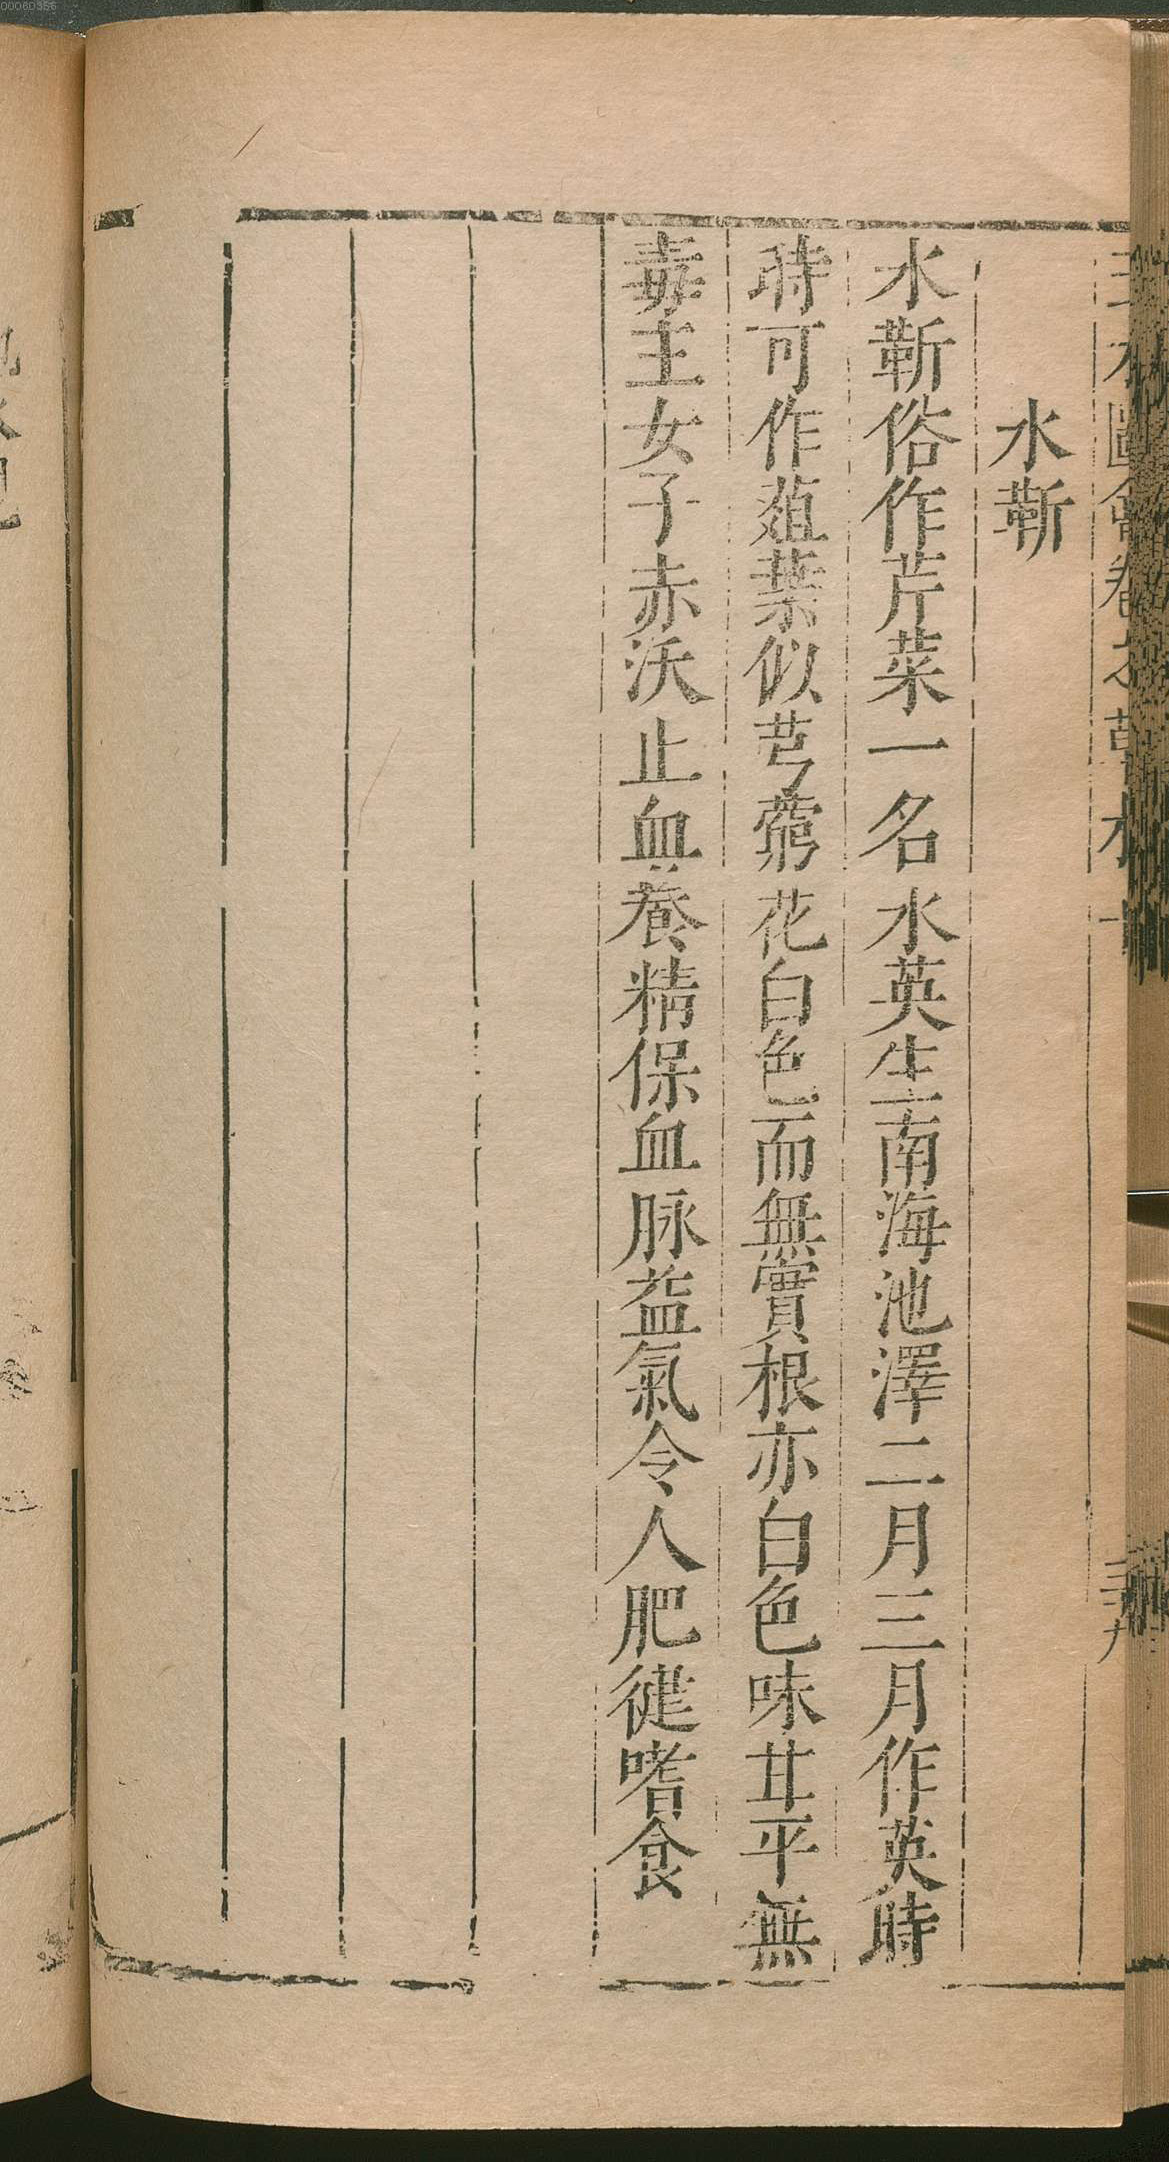 水蘄
水蘄俗作芹菜一名水英生南海池澤二月三月作英時
時可作葅葉似芎藭花白色而無實根亦白色味甘平無
毒主女子赤沃止血養精保血脉益氣令人肥健嗜食